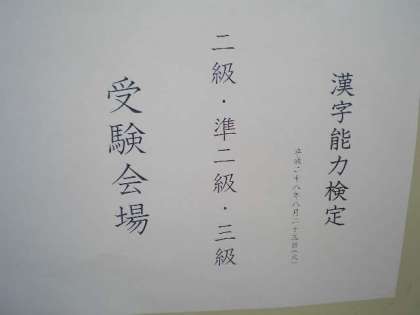 漢字能力検定
平成二十八年八月二十三日(火)
二級・準二級・三級
受験会場